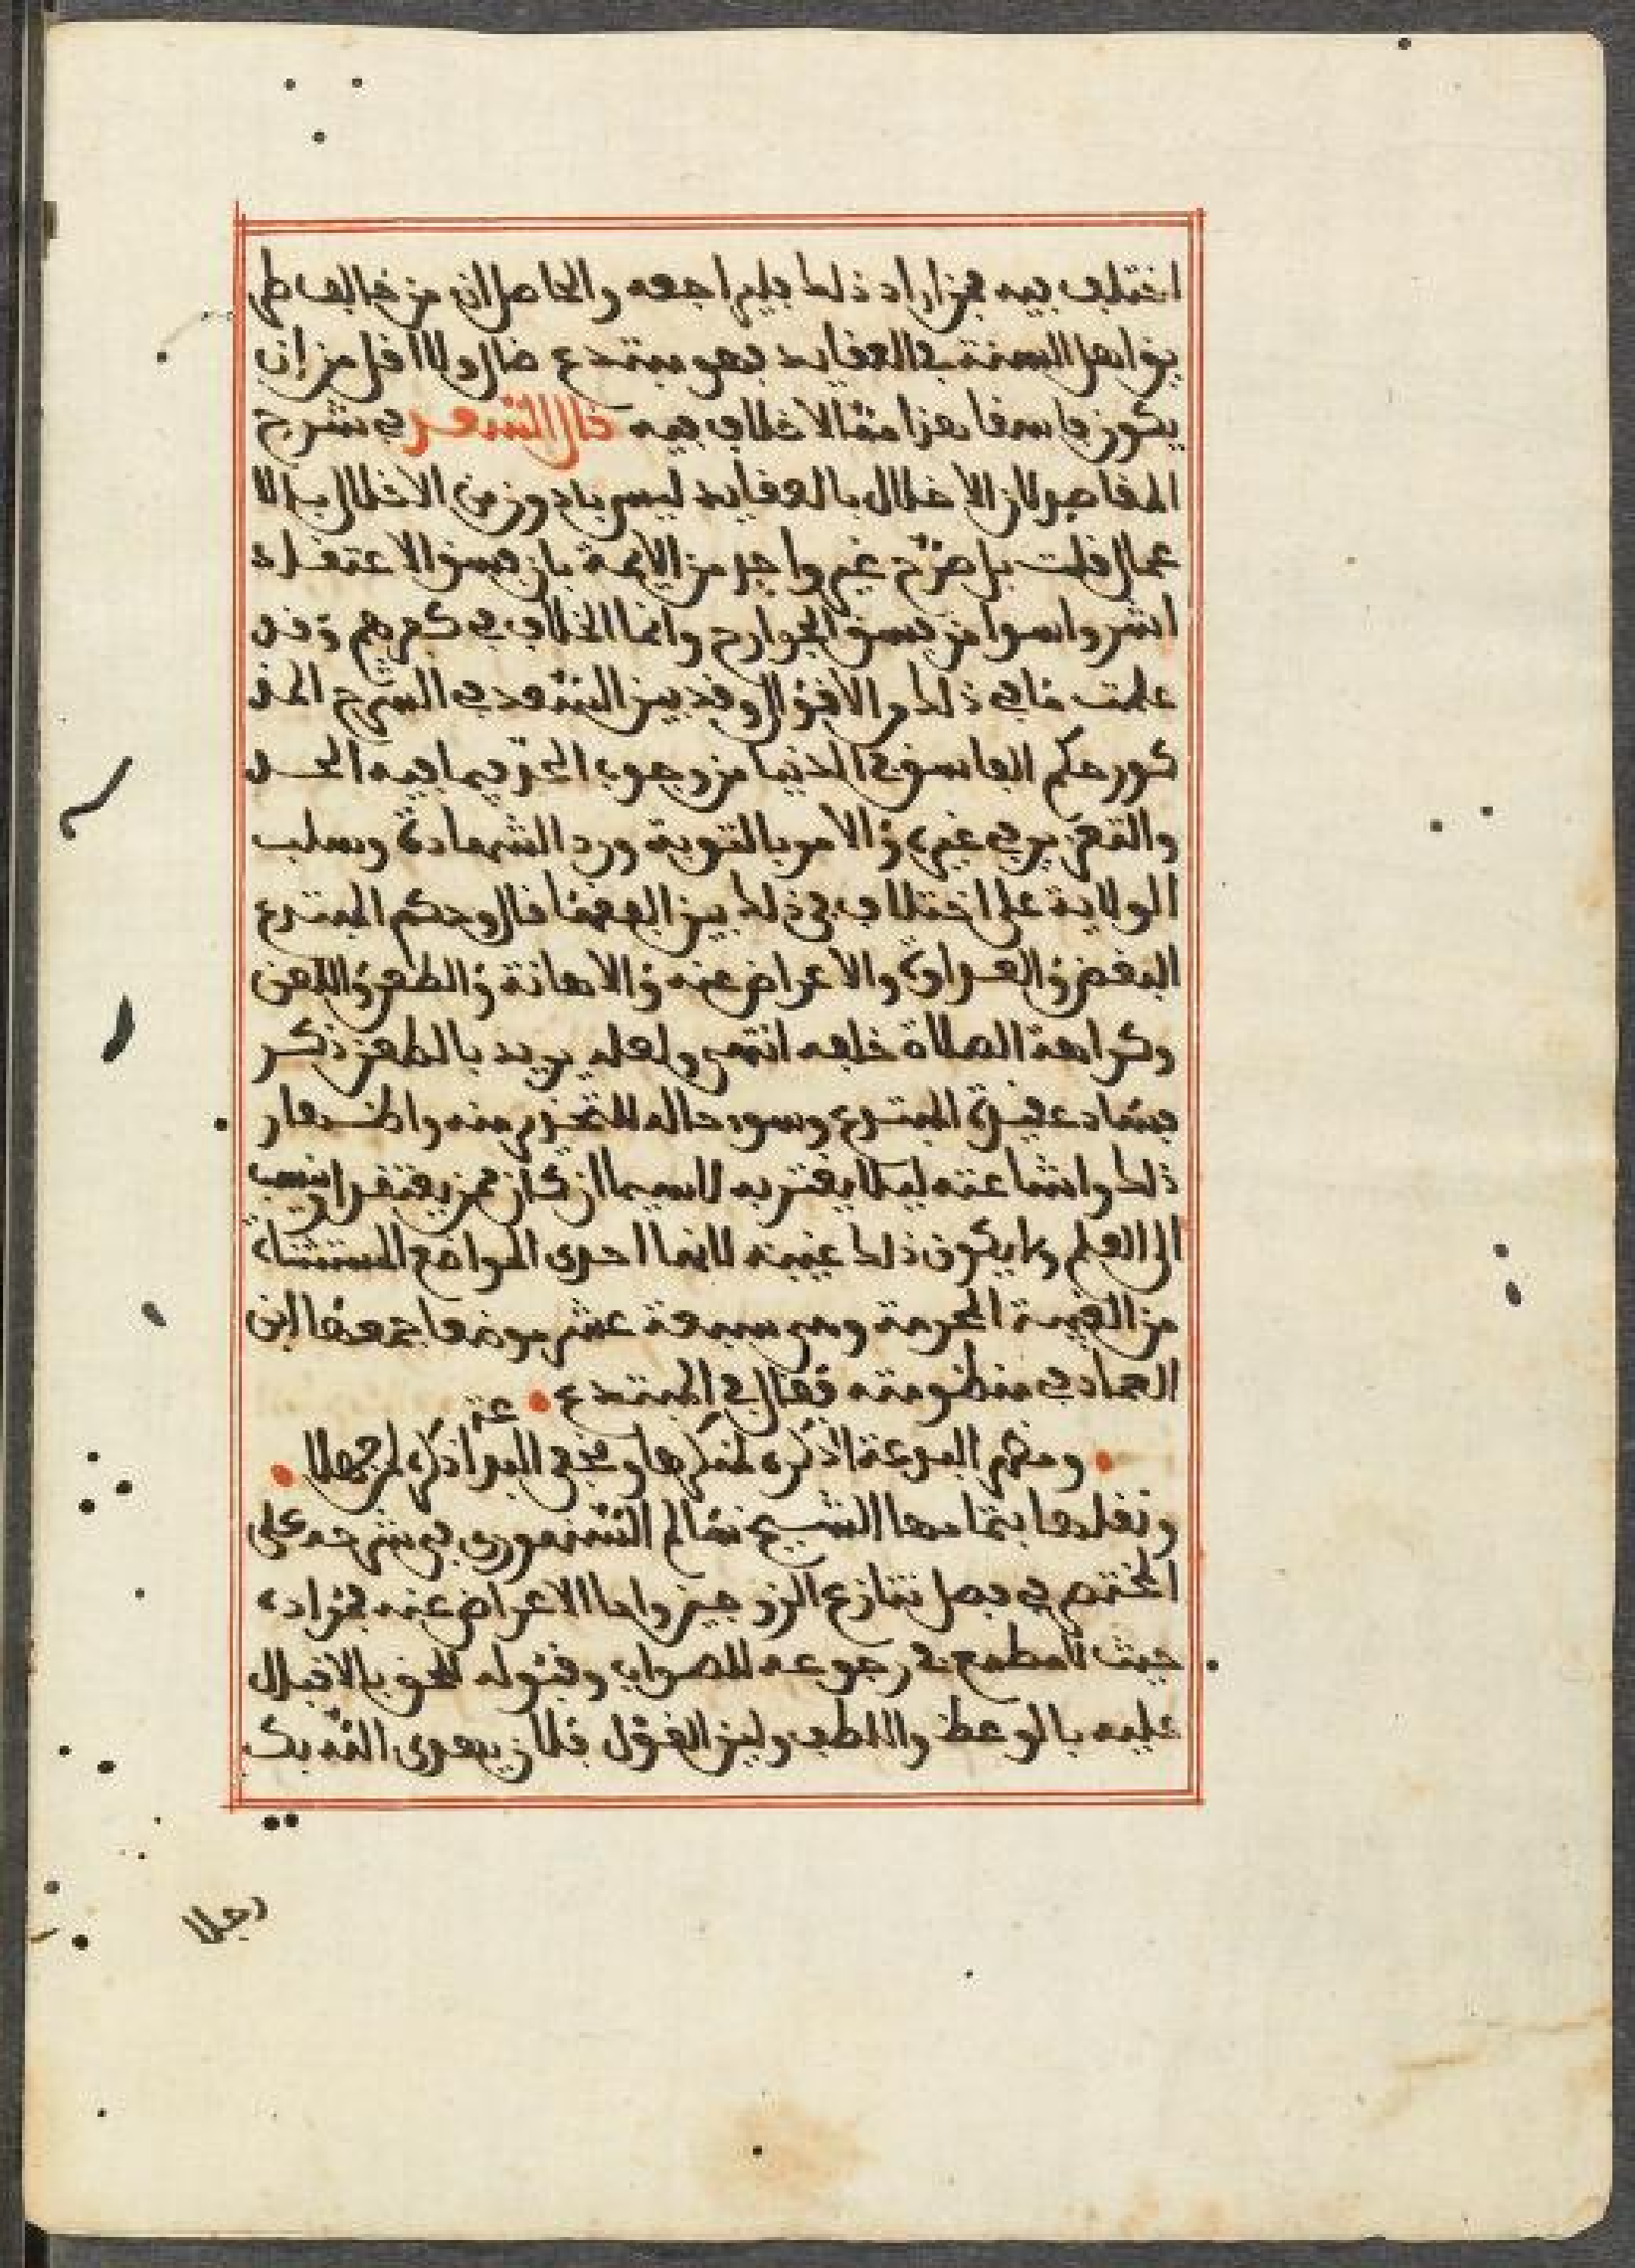 اختلف فيه فمن اراد ذلك فليراجعه والحاصل ان من خالف طر
يق اهل السنة في العقايد فهو مبتدع ضال ولا اقل من ان
يكون فاسقا هذا مما لا خلاف فيه قال السعد في شرح
المقاصد لان الاخلال بالعقايد ليس بادون من الاخلال بالا
عمال قلت بل صرح غير واحد من الايمة بان فسق الاعتقاد
اشر واسوا من فسق الجوارح وانما الخلاف في كفرهم وقد
علمت ما في ذلك من الاقوال وقد بين السعد في الشرح المذ
كور حكم الفاسق في الدنيا من وجوب الحد فيما فيه الحد
والتعزير في غيره والامر بالتوبة ورد الشهادة وسلب
الولاية على اختلاف في ذلك بين الفقها قال وحكم المبتدع
البغض والعداوة والاعراض عنه والاهانة والطعن واللعن
وكراهة الصلاة خلفه انتهى ولعله يريد بالطعن ذكر
فساد عقيدة المبتدع وسوء حاله للتحذير منه واظهار
ذلك واشاعته ليلا يغتر به لاسيما ان كان ممن يعتقد او ينسب
الى العلم ولا يكون ذلك غيبة لانها احدى المواضع المستثناة
من الغيبة المحرمة وهي سبعة عشر موضعا جمعها ابن
العماد في منظومته فقال في المبتدع
ومظهر البدعة اذكره لمنكرها ومخفي البدعة اذكره لمن جهلا
ونقلها بتمامها الشيخ سالم السنهوري في شرحه على
المختصر في فصل تنازع الزوجين واما الاعراض عنه فمراده
حيث لا مطمع في رجوعه للصواب وقبوله للحق بالاقبال
عليه بالوعظ واللطف ولين القول فلان يهدي الله بك
رجلا